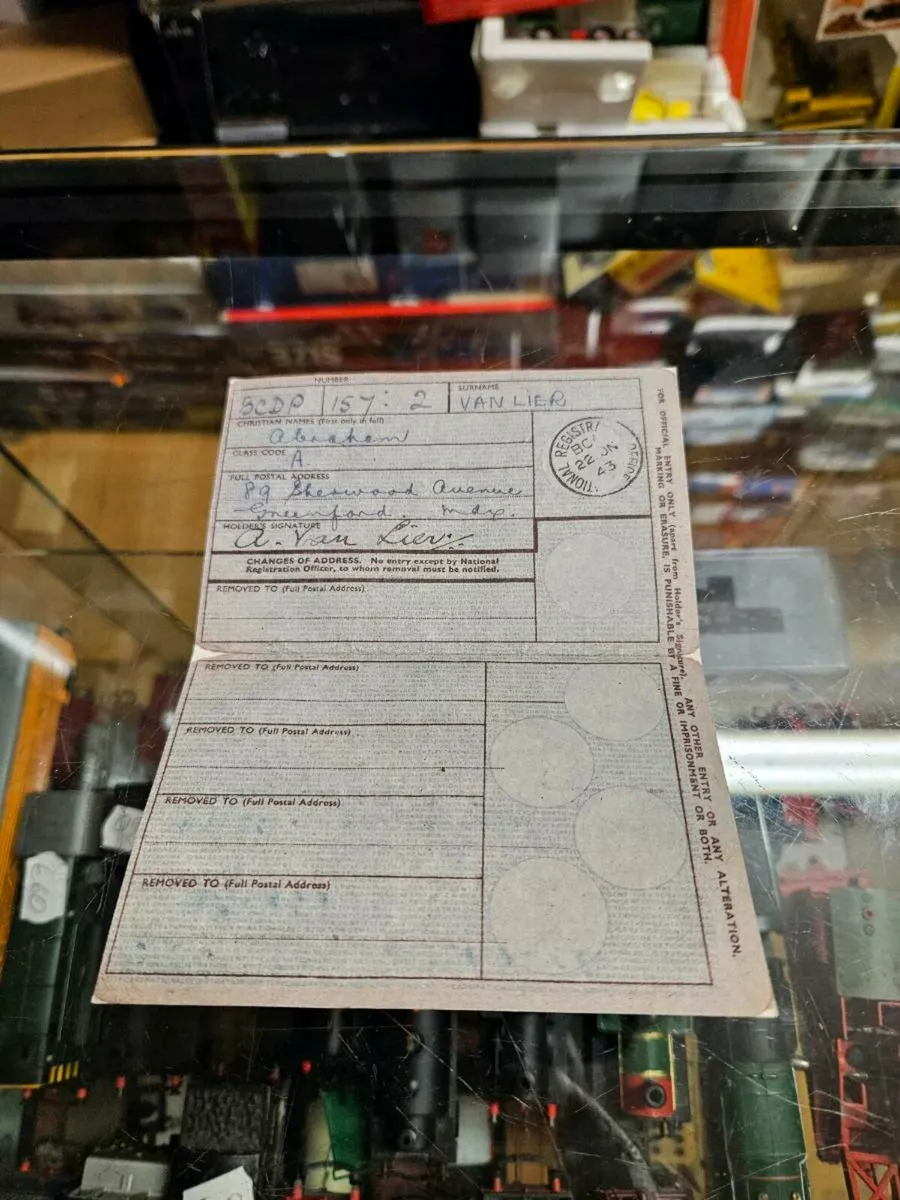 NUMBER
BCDP 157: 2
SURNAME
VAN LIER
CHRISTIAN NAMES (First only in full)
Abraham
CLASS CODE
A
FULL POSTAL ADDRESS
89 Sherwood Avenue
Greenford. Mdx.
HOLDER'S SIGNATURE
A. Van Lier
NATIONAL REGISTR OFFICE
BC
22 JN
43
CHANGES OF ADDRESS. No entry except by National
Registration Officer, to whom removal must be notified.
REMOVED TO (Full Postal Address)
REMOVED TO (Full Postal Address)
REMOVED TO (Full Postal Address)
REMOVED TO (Full Postal Address)
REMOVED TO (Full Postal Address)
FOR OFFICIAL ENTRY ONLY (apart from Holder's Signature). ANY OTHER ENTRY OR ANY ALTERATION,
MARKING OR ERASURE, IS PUNISHABLE BY A FINE OR IMPRISONMENT OR BOTH.